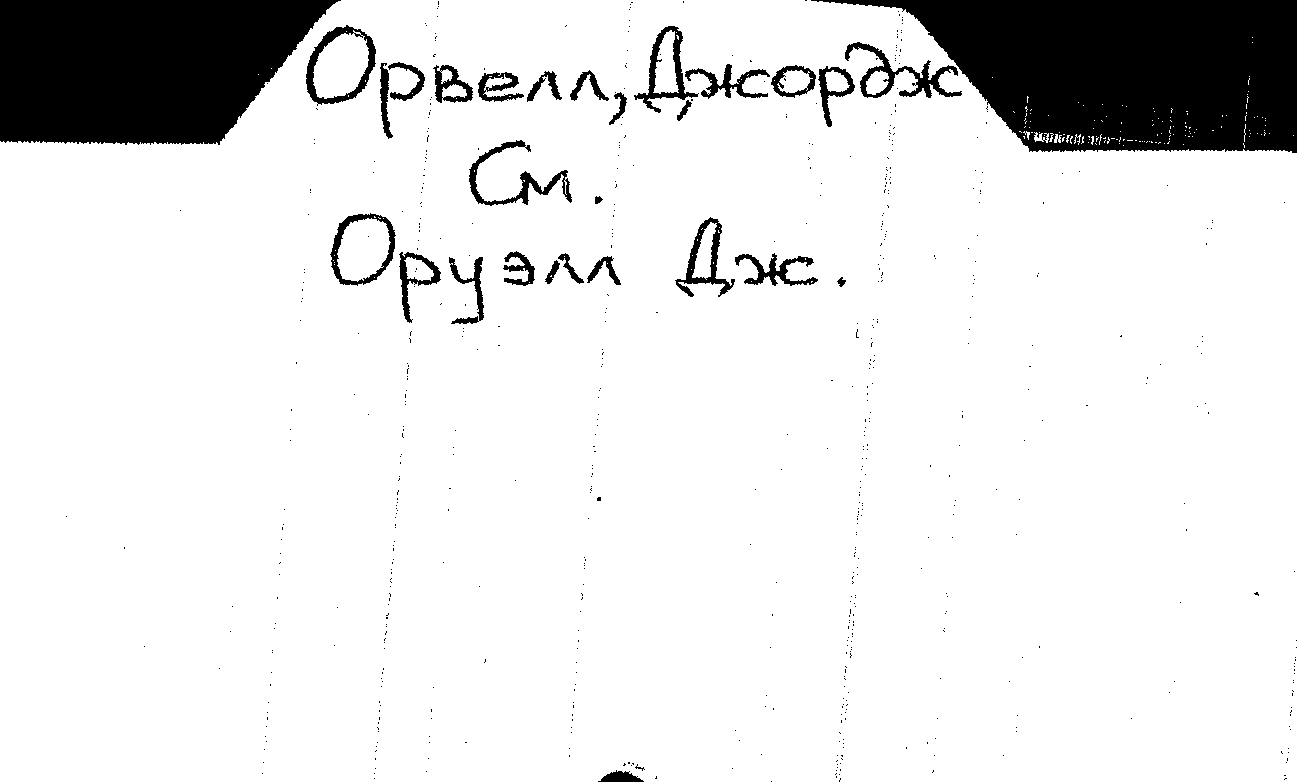 Орвелл, Джордж
См.
Оруэлл Дж.